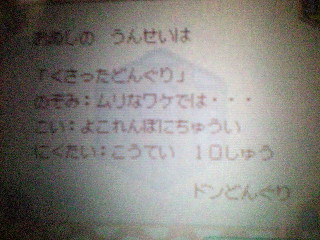 おぬしの うんせいは
「くさったどんぐり」
のぞみ：ムリなワケでは・・・
こい：よこれんぼにちゅうい
にくたい：こうてい １０しゅう
ドンどんぐり